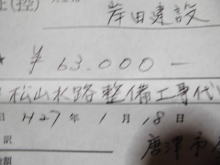 (控)
岸田建設
¥63,000-
松山水路整備工事代
H27年1月18日
訳
唐津市